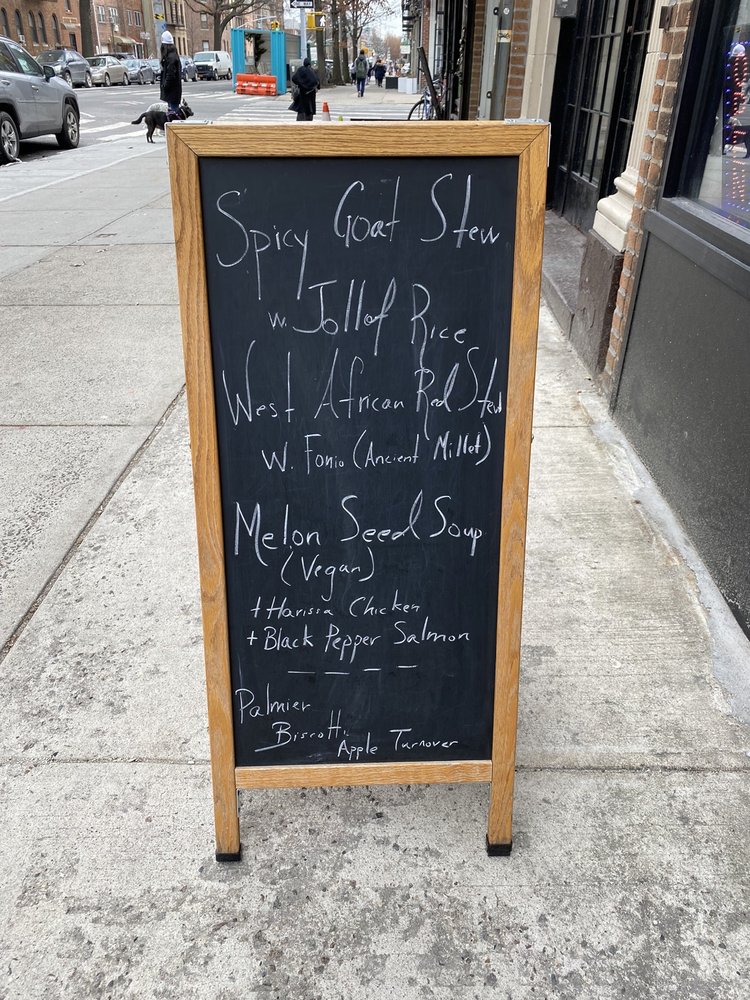 Spicy Goat Stew
w. Jollof Rice
West African Red Stew
w. Fonio (Ancient Millet)
Melon Seed Soup
(Vegan)
+ Harissa Chicken
+ Black Pepper Salmon
Palmier
Biscotti
Apple Turnover